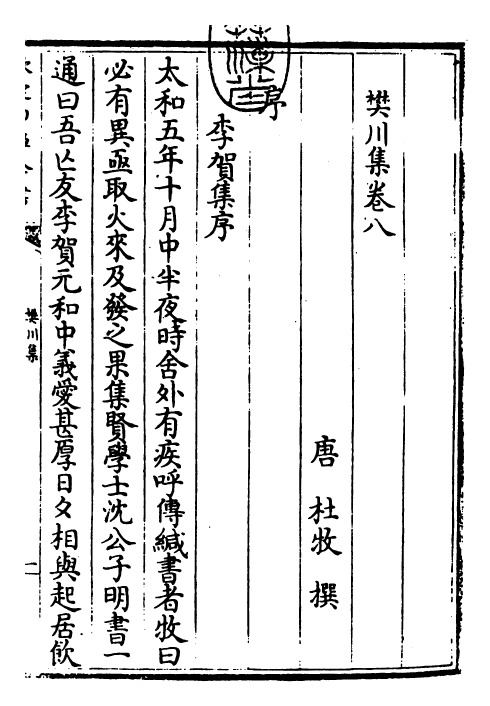 樊川集卷八
唐 杜牧 撰
序
李賀集序
太和五年十月中半夜時舍外有疾呼傳緘書者牧曰
必有異亟取火來及發之果集賢學士沈公子明書一
通曰吾亡友李賀元和中義愛甚厚日夕相與起居飲
樊川集
一